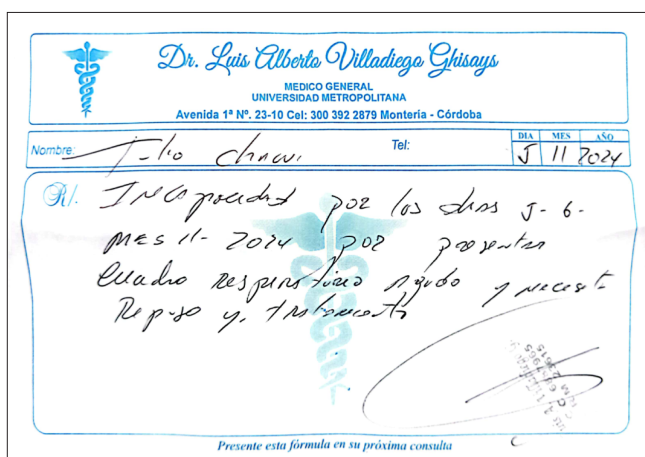 Dr. Luis Alberto Villadiego Ghisays
MEDICO GENERAL
UNIVERSIDAD METROPOLITANA
Avenida 1ª Nº. 23-10 Cel: 300 392 2879 Monteria - Córdoba
Nombre: Julio Tel: DIA MES AÑO
5 11 2024
R/. Incapacidad por los dias 5-6-
MES 11-2024 por presentar
Cuadro respiratorio agudo y necesita
Reposo y tratamiento
Presente esta fórmula en su próxima consulta